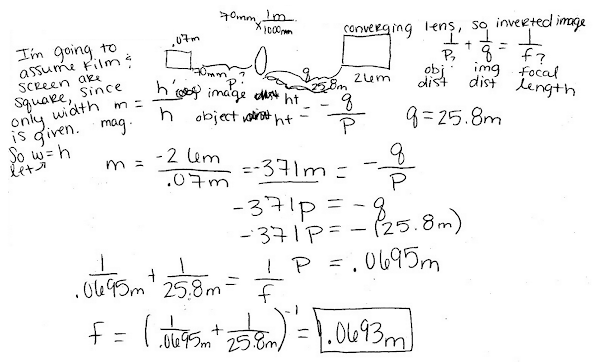 70mm × 1m / 1000mm
.07m
70mm
P?
q
25.8m
26m
converging lens, so inverted image
1/P? + 1/q = 1/f?
obj dist img dist focal length
I'm going to
assume film &
screen are
square, since
only width
is given.
So w=h
let
mag.
m = h'/h image ht / object ht = -q/P
q = 25.8m
m = -26m/.07m = -371m = -q/P
-371p = -q
-371P = -(25.8m)
P = .0695m
1/.0695m + 1/25.8m = 1/f
f = (1/.0695m + 1/25.8m)⁻¹ = .0693m